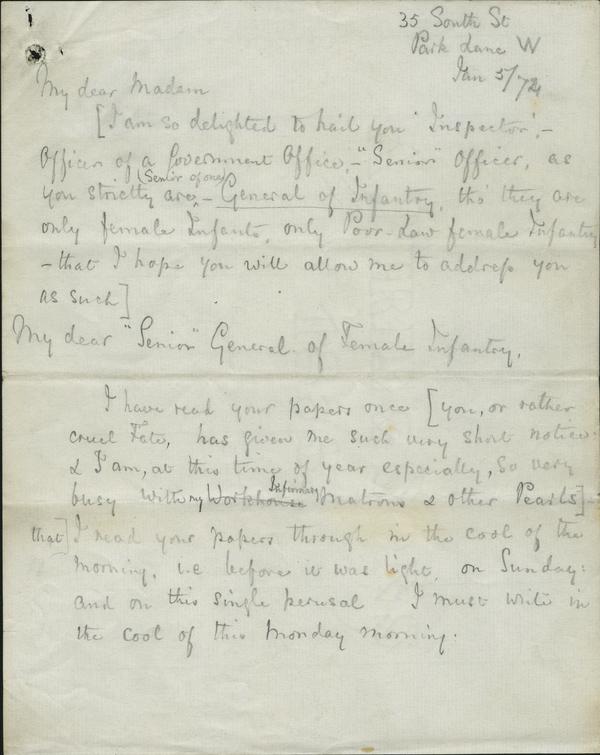 35 South St
Park Lane W
Jan 5/74
My dear Madam
[I am so delighted to hail you 'Inspector',-
Officer of a Government Office,- "Senior" Officer, as
(Senior of one)
you strictly are,- General of Infantry, tho' they are
only female Infants, only Poor-Law female Infantry
- that I hope you will allow me to address you
as such]
My dear "Senior" General of Female Infantry,
I have read your papers once [you, or rather
cruel Fate, has given me such very short notice:
& I am, at this time of year especially, so very
Infirmary
busy with my Workhouse Matrons & other Pearls]-
that] I read your papers through in the cool of the
morning, i.e before it was light, on Sunday:
and on this single perusal I must write in
the cool of this Monday morning.